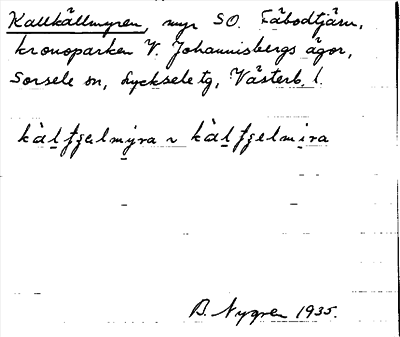 Kallkällmyren, myr SO. Fäbodtjärn,
kronoparken V. Johannisbergs ägor,
Sorsele sn, Lycksele tg, Västerb. l.
kàlfʒelmyra ~ kàlfʒelmira
B. Nygren 1935.